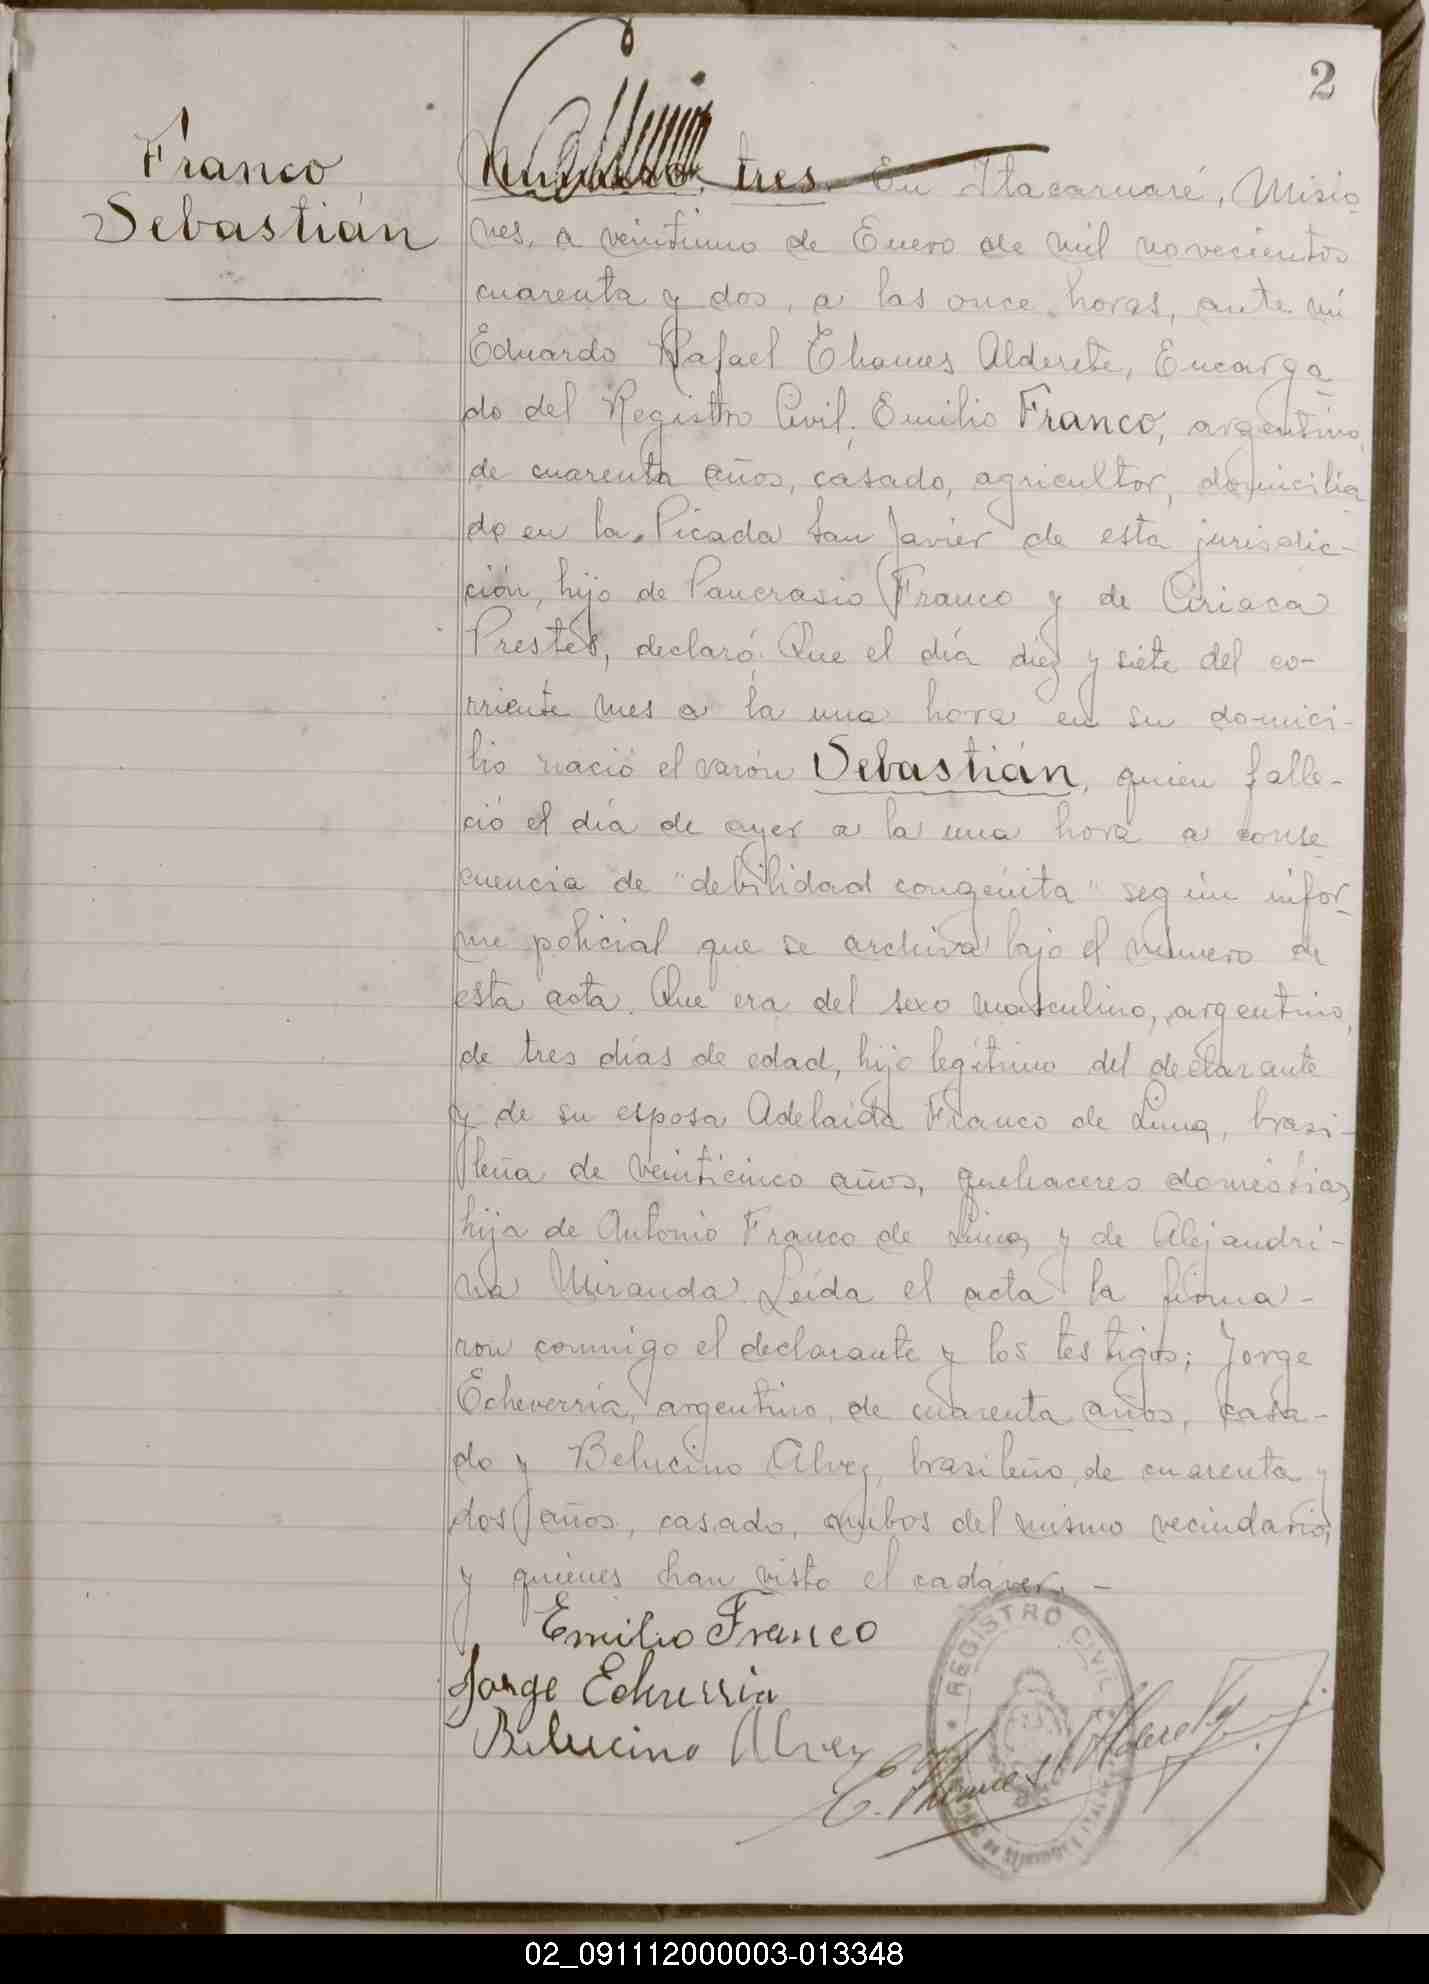 2
Franco
Sebastián
Número tres. En Itacaruaré, Misio-
nes, a veintiuno de Enero de mil novecientos
cuarenta y dos, a las once horas, ante mí
Eduardo Rafael Thames Alderete, Encarga-
do del Registro Civil, Emilio Franco, argentino,
de cuarenta años, casado, agricultor, domicilia-
do en la Picada San Javier de esta jurisdic-
ción, hijo de Pancrasio Franco y de Ciriaca
Prestes, declaró: Que el día diez y siete del co-
rriente mes a la una hora en su domici-
lio nació el varón Sebastián, quien falle-
ció el día de ayer a la una hora a conse-
cuencia de "debilidad congénita" según infor-
me policial que se archiva bajo el número de
esta acta. Que era del sexo masculino, argentino,
de tres días de edad, hijo legítimo del declarante
y de su esposa Adelaida Franco de Lima, brasi-
leña de veinticinco años, quehaceres domésticos,
hija de Antonio Franco de Lima, y de Alejandri-
na Miranda. Leída el acta la firma-
ron conmigo el declarante y los testigos; Jorge
Echeverría, argentino, de cuarenta años, casa-
do y Belucino Alvez, brasileño, de cuarenta y
dos años, casado, ambos del mismo vecindario,
y quienes han visto el cadáver. -
Emilio Franco
Jorge Echeverria
Belucino Alvez
E. Thames Alderete
REGISTRO CIVIL
02_091112000003-013348